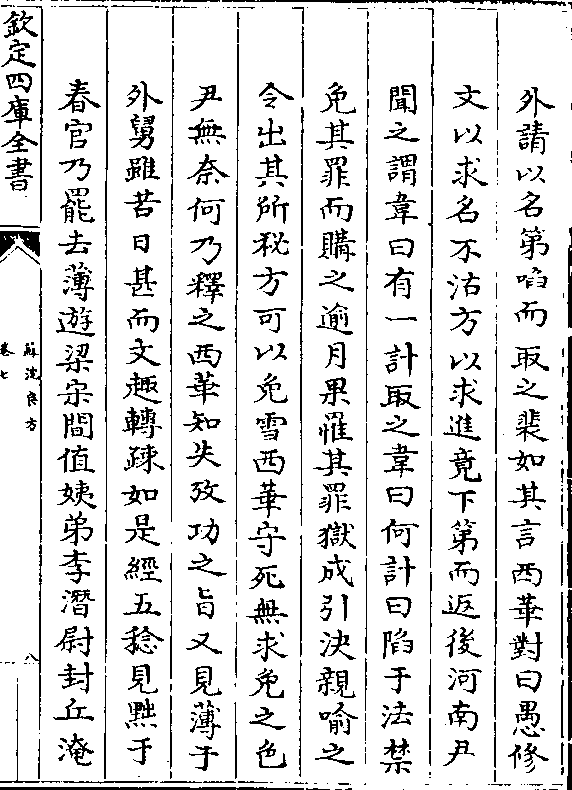 外請以名第啗而取之裴如其言西華對曰愚修
文以求名不沽方以求進竟下第而返後河南尹
聞之謂韋曰有一計取之韋曰何計曰陷于法禁
免其罪而購之逾月果罹其罪獄成引決親喻之
令出其所秘方可以免雪西華守死無求免之色
尹無奈何乃釋之西華知失攷功之旨又見薄于
外舅雖苦日甚而文趣轉疎如是經五稔見黜于
春官乃罷去薄遊梁宋間值姨弟李潛尉封丘淹
欽定四庫全書
蘇沈良方
卷七
八